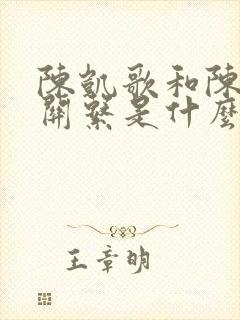 陳凱歌和陳
關繫是什麼
王章明